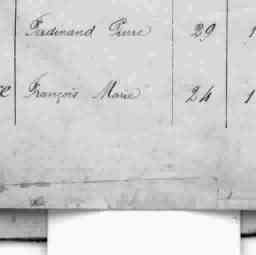 Ferdinand Pierre 29 1
François Marie 24 1